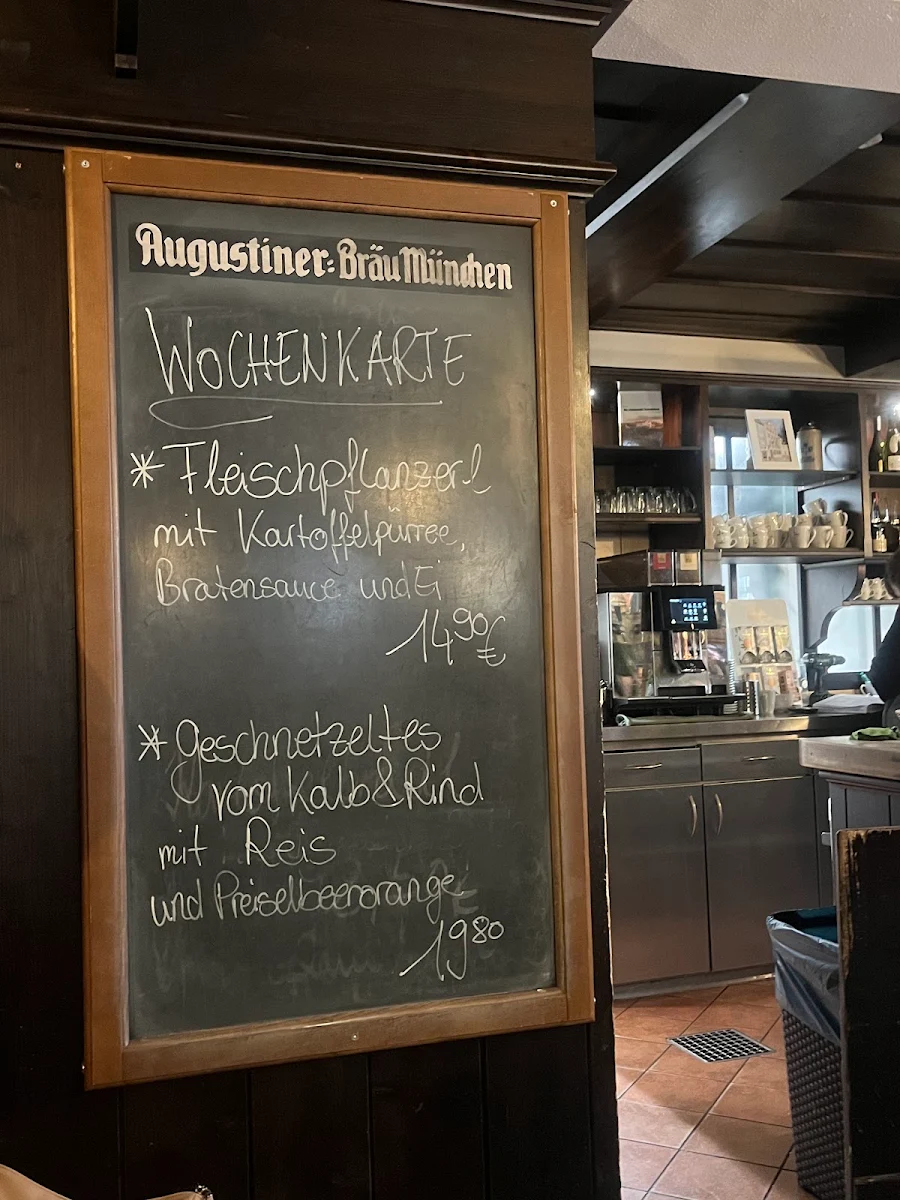 Augustiner-Bräu München
WOCHENKARTE
* Fleischpflanzerl
mit Kartoffelpürree,
Bratensauce und Ei
14,90 €
* Geschnetzeltes
vom Kalb & Rind
mit Reis
und Preiselbeerorange
19,80